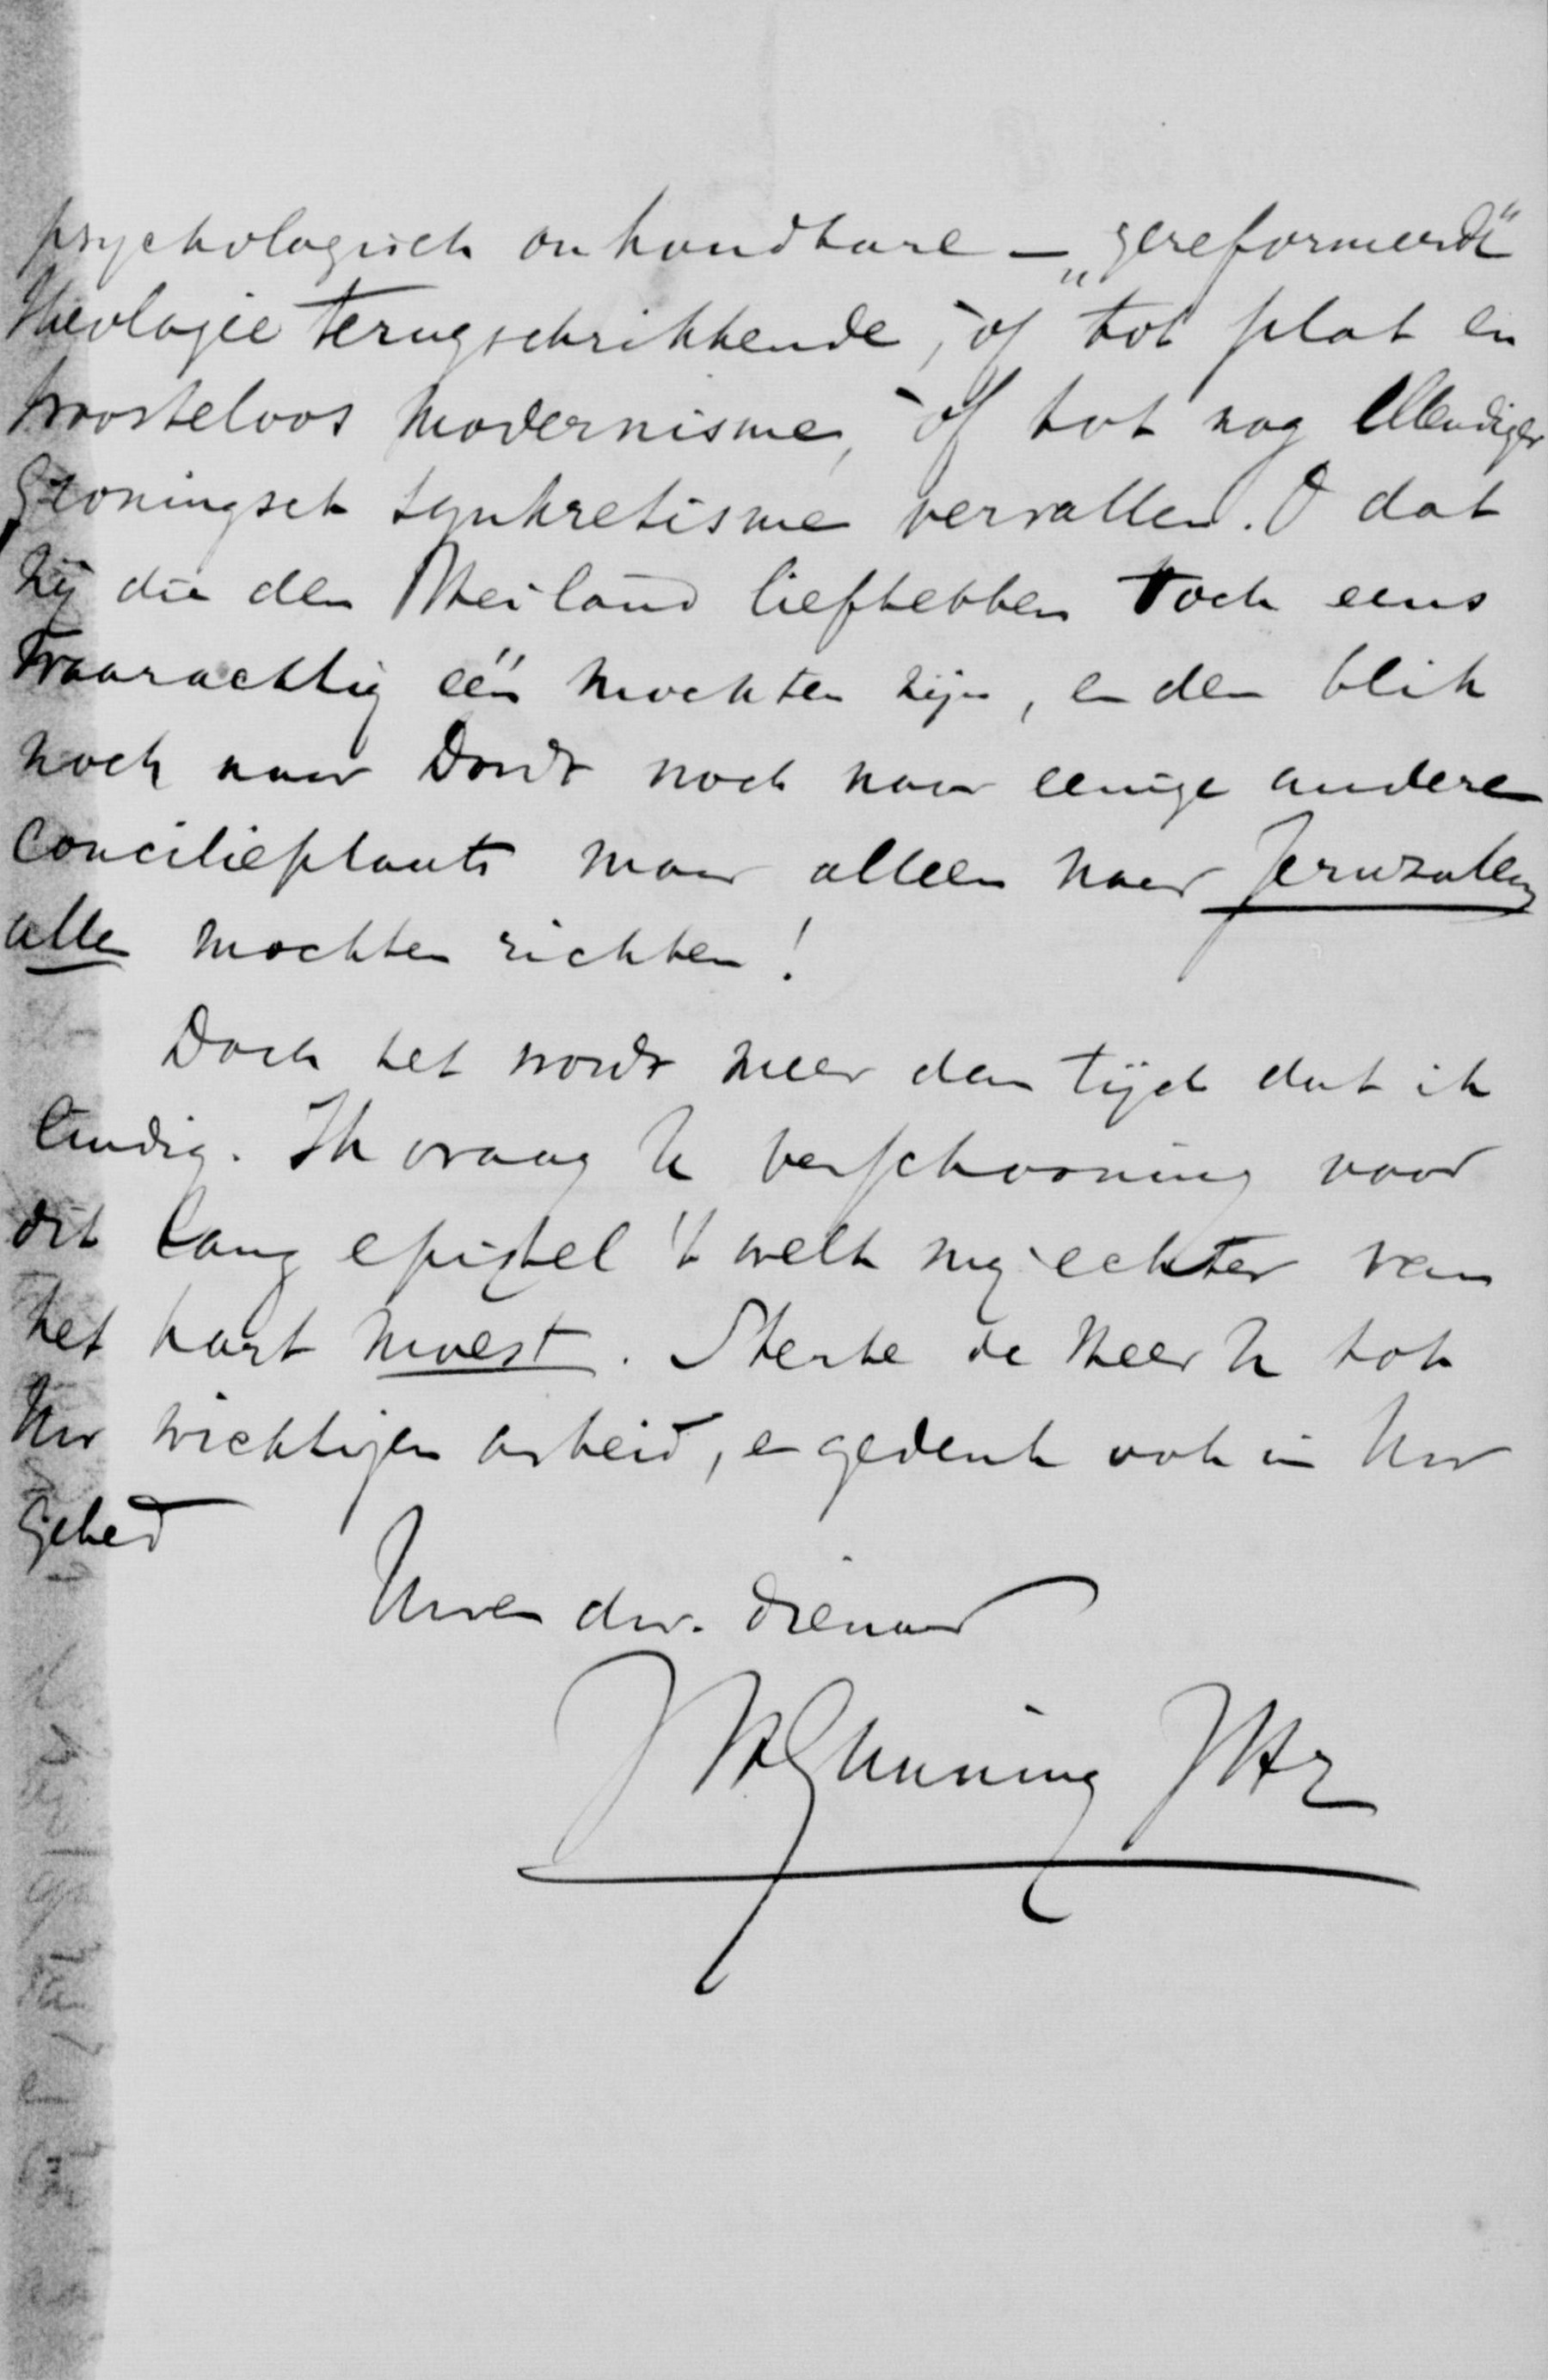 psychologisch onhoudbare – „gereformeerde"
theologie terugschrikkende, òf tot plat en
troosteloos modernisme, òf tot nog ellendiger
Groningsch synkretisme vervallen. O dat
zij die den Heiland liefhebben toch eens
waarachtig één mochten zijn, en den blik
noch naar Dordt noch naar eenige andere
concilieplaats maar alleen naar Jeruzalem
allen mochten richten!
Doch het wordt meer dan tijd dat ik
eindig. Ik vraag U verschooning voor
dit lang epistel 't welk mij echter van
het hart moest. Sterke de Heer U tot
Uw wichtigen arbeid, en gedenk ook in Uw
gebed
Uwen dw. dienaar
JHGunning JHz